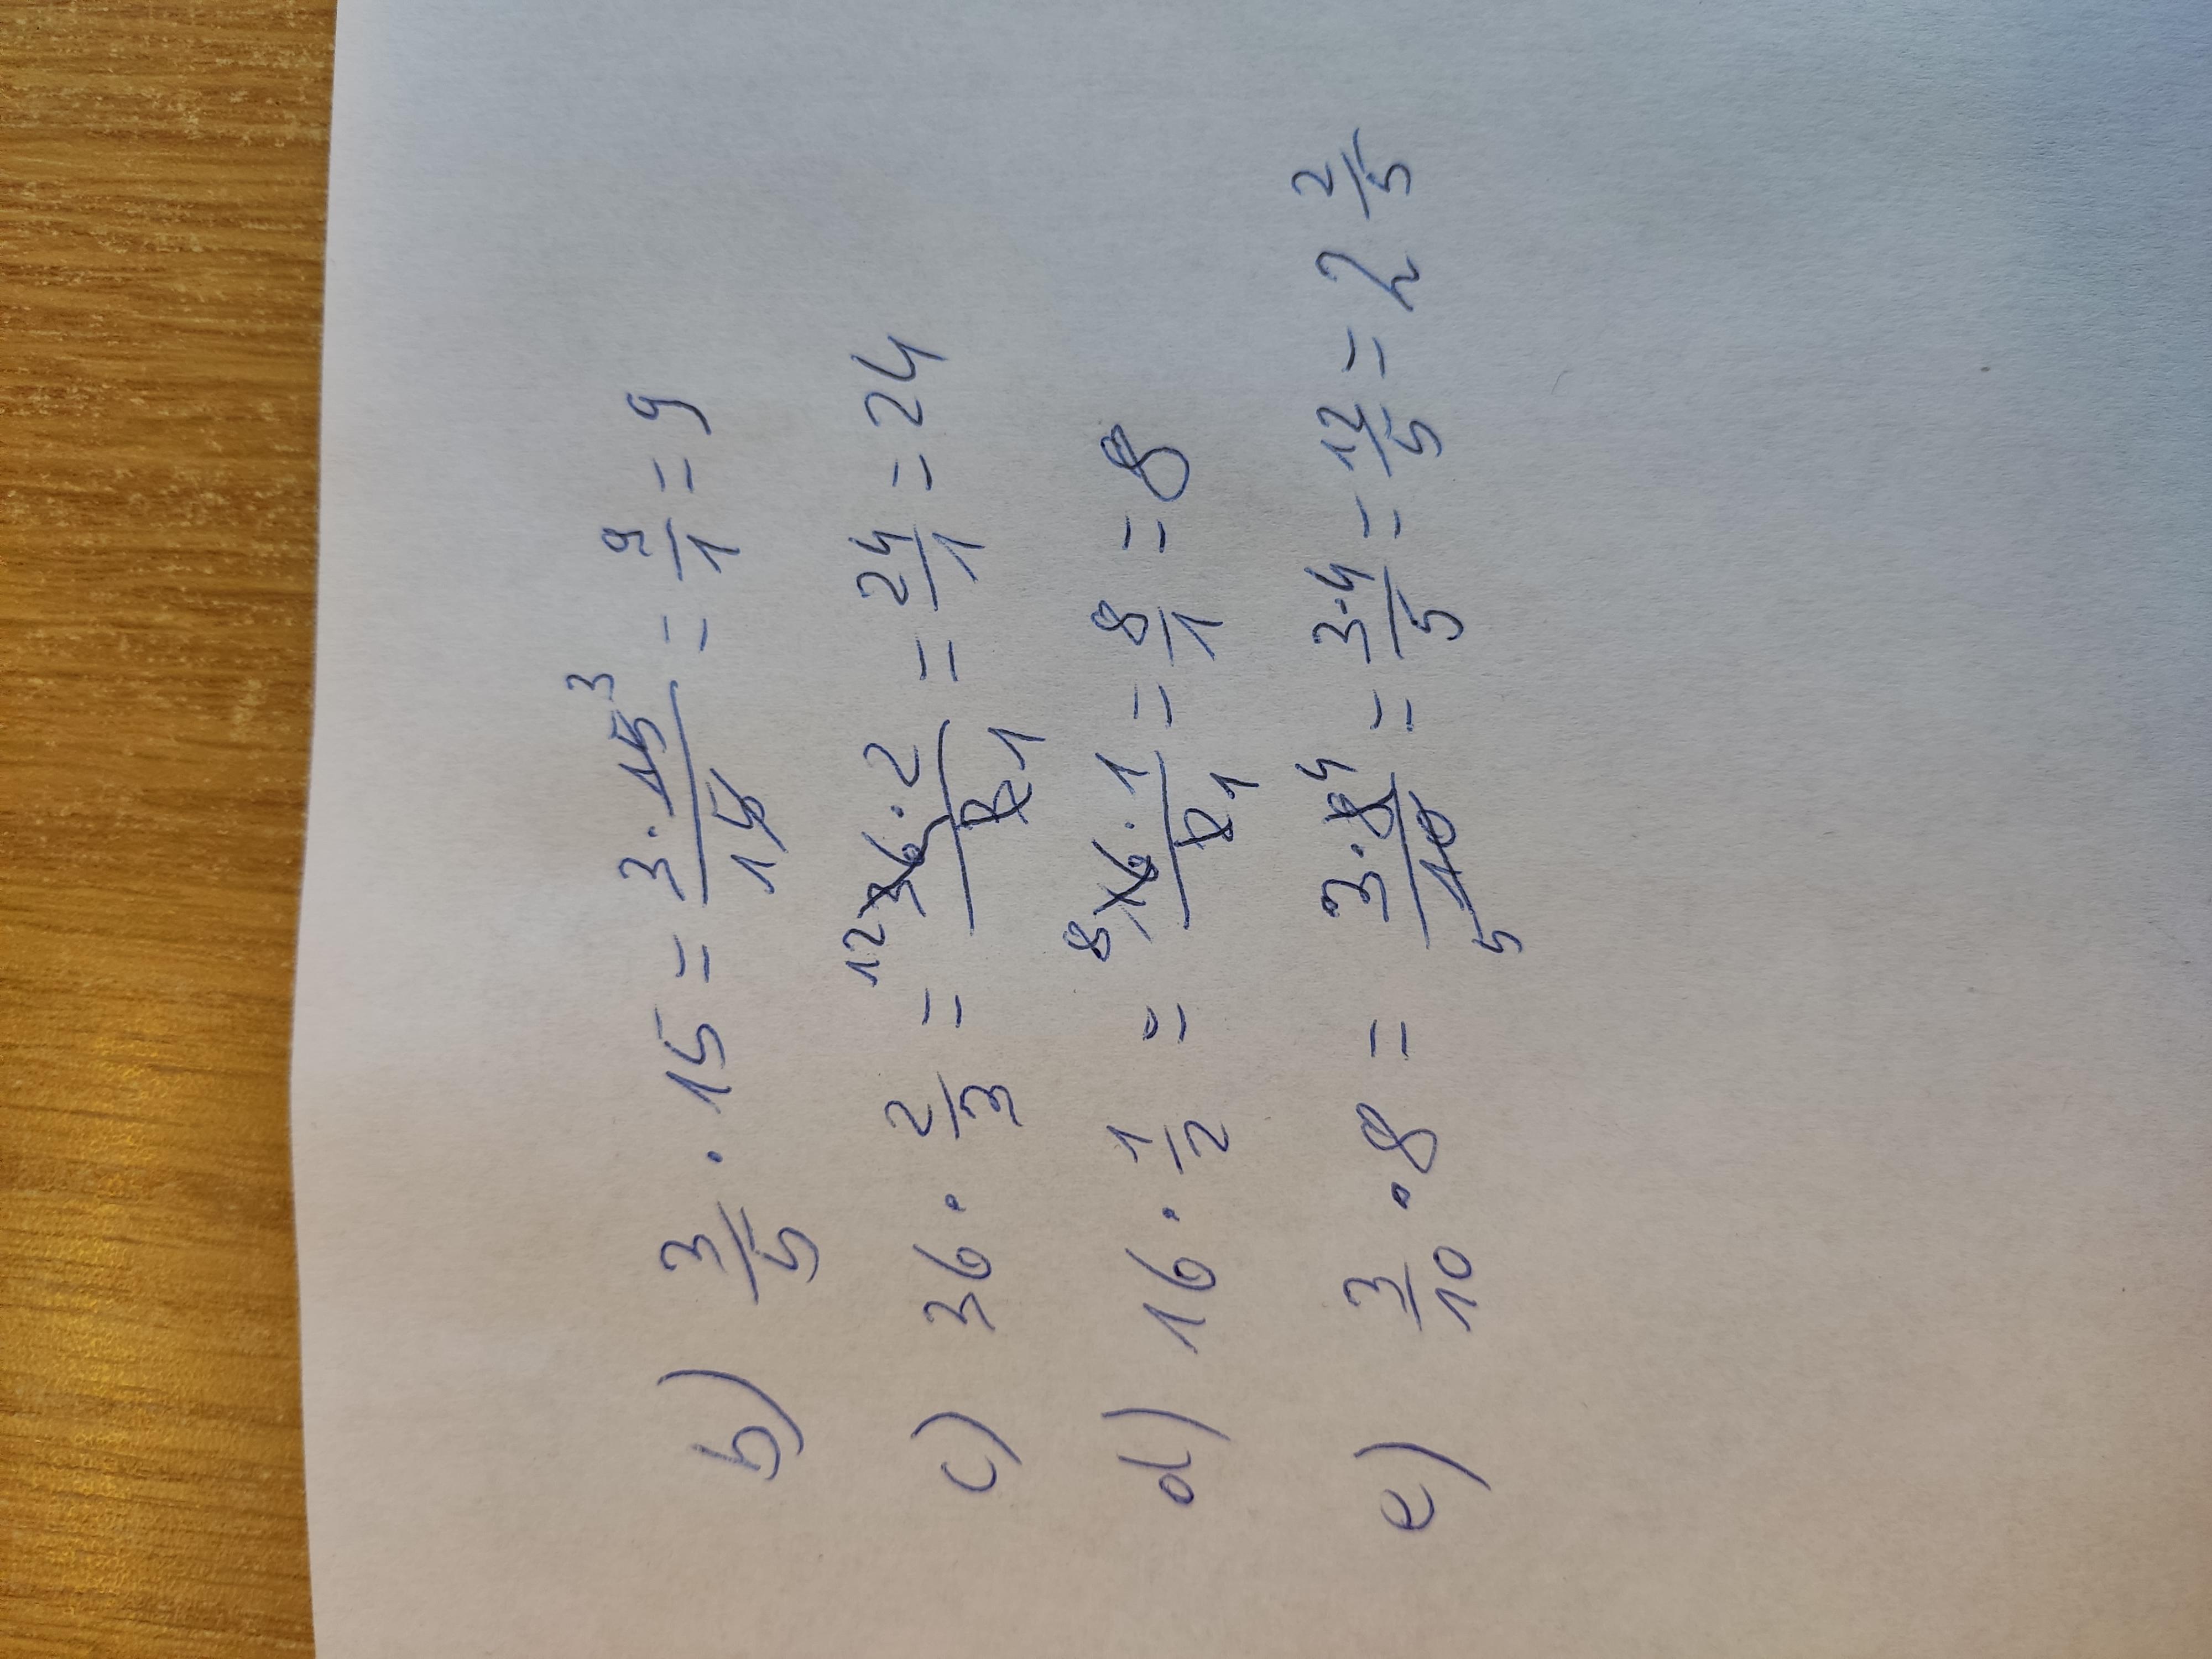 b) 3/5 · 15 = 3·15 3/15 = 9/1 = 9
c) 36 · 2/3 = 12 36·2/3 1 = 24/1 = 24
d) 16 · 1/2 = 8 16·1/2 1 = 8/1 = 8
e) 3/10 · 8 = 3·8 4/10 5 = 3·4/5 = 12/5 = 2 2/5